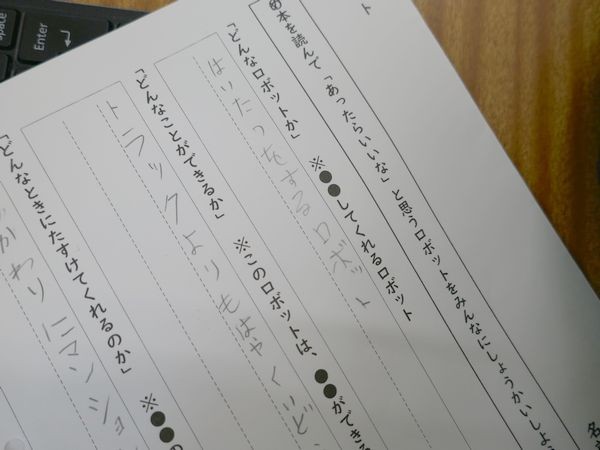 ト
本を読んで「あったらいいな」と思うロボットをみんなにしょうかいしよ
名
「どんなロボットか」 ※●●してくれるロボット
はいたつをするロボット
「どんなことができるか」 ※このロボットは、●●ができる
トラックよりもはやく
「どんなときにたすけてくれるのか」 ※●●の
かわりにマンショ
Enter
space